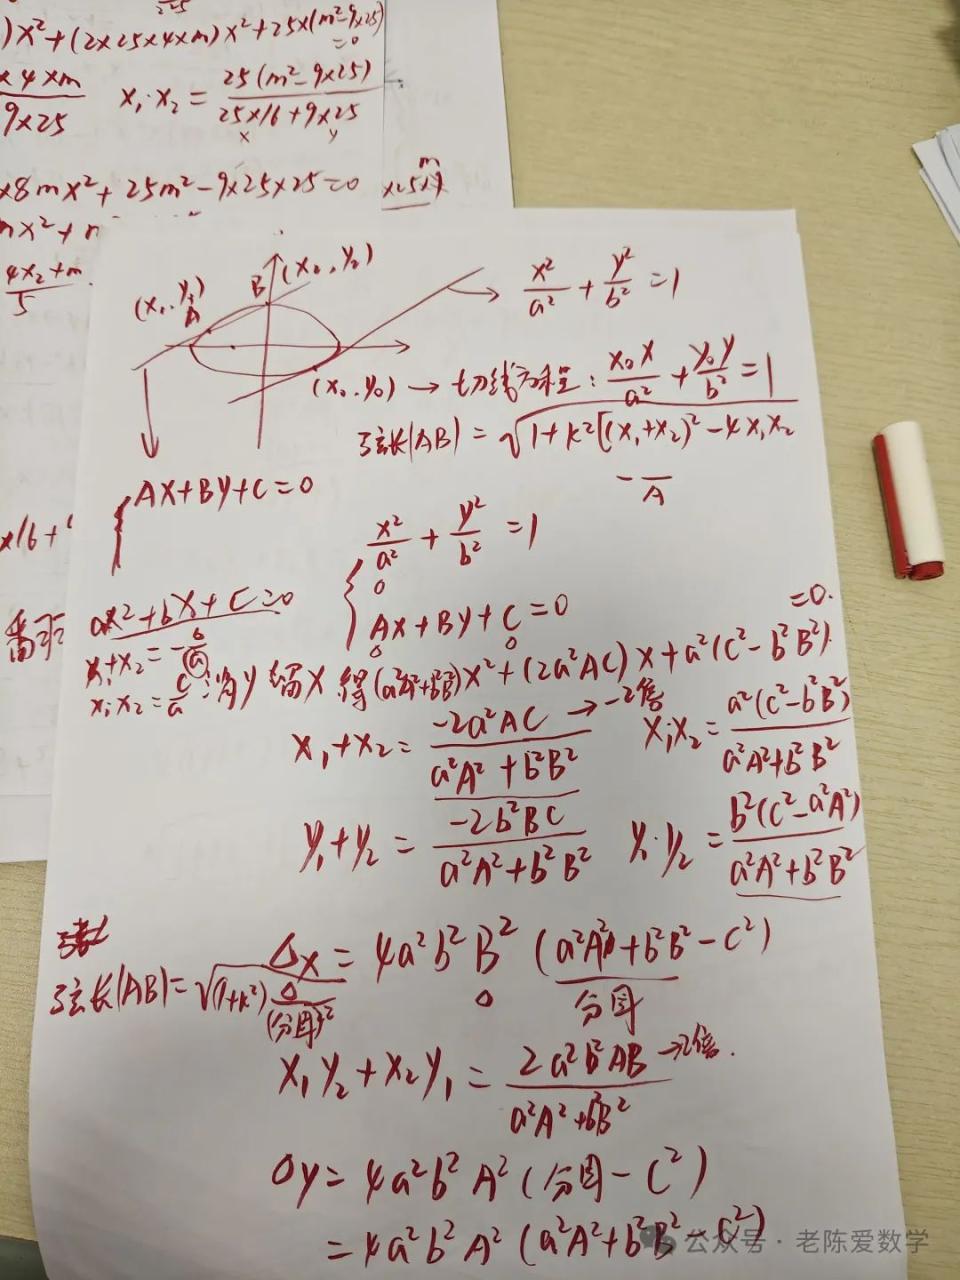 )x²+(2x25x4xm)x²+25x(m²-9x25)
=0
x4xm
9x25
x₁·x₂ = 25(m²-9x25)
25x16+9x25
x y
x8mx²+25m²-9x25x25=0
m
x25x9
mx²+
4x₂+m
5
x16+
(x₁,y₁)
A
B (x₂,y₂)
x²/a² + y²/b² =1
(x₀,y₀) → 切线方程: x₀x/a² + y₀y/b² =1
弦长|AB| = √1+k²[(x₁+x₂)²-4x₁x₂
- —
A
{AX+BY+C=0
{x²/a² + y²/b² =1
0
AX+BY+C=0
0 0
ax²+bx+C=0
x₁+x₂=-b/a
x₁·x₂=c/a
消y留x得(a²A²+b²B²)x²+(2a²AC)x+a²(C²-b²B²)
=0.
x₁+x₂= -2a²AC/a²A²+b²B² →-2倍
x₁·x₂= a²(C²-b²B²)/a²A²+b²B²
y₁+y₂= -2b²BC/a²A²+b²B²
y₁·y₂= b²(C²-a²A²)/a²A²+b²B²
Δx=4a²b²B²(a²A²+b²B²-C²)
0 分母
弦长|AB|=√(1+k²)Δ/(分母)²
x₁y₂+x₂y₁= 2a²b²AB/a²A²+b²B² →2倍.
Δy=4a²b²A²(分母-C²)
=4a²b²A²(a²A²+b²B²-C²)
公众号·老陈爱数学